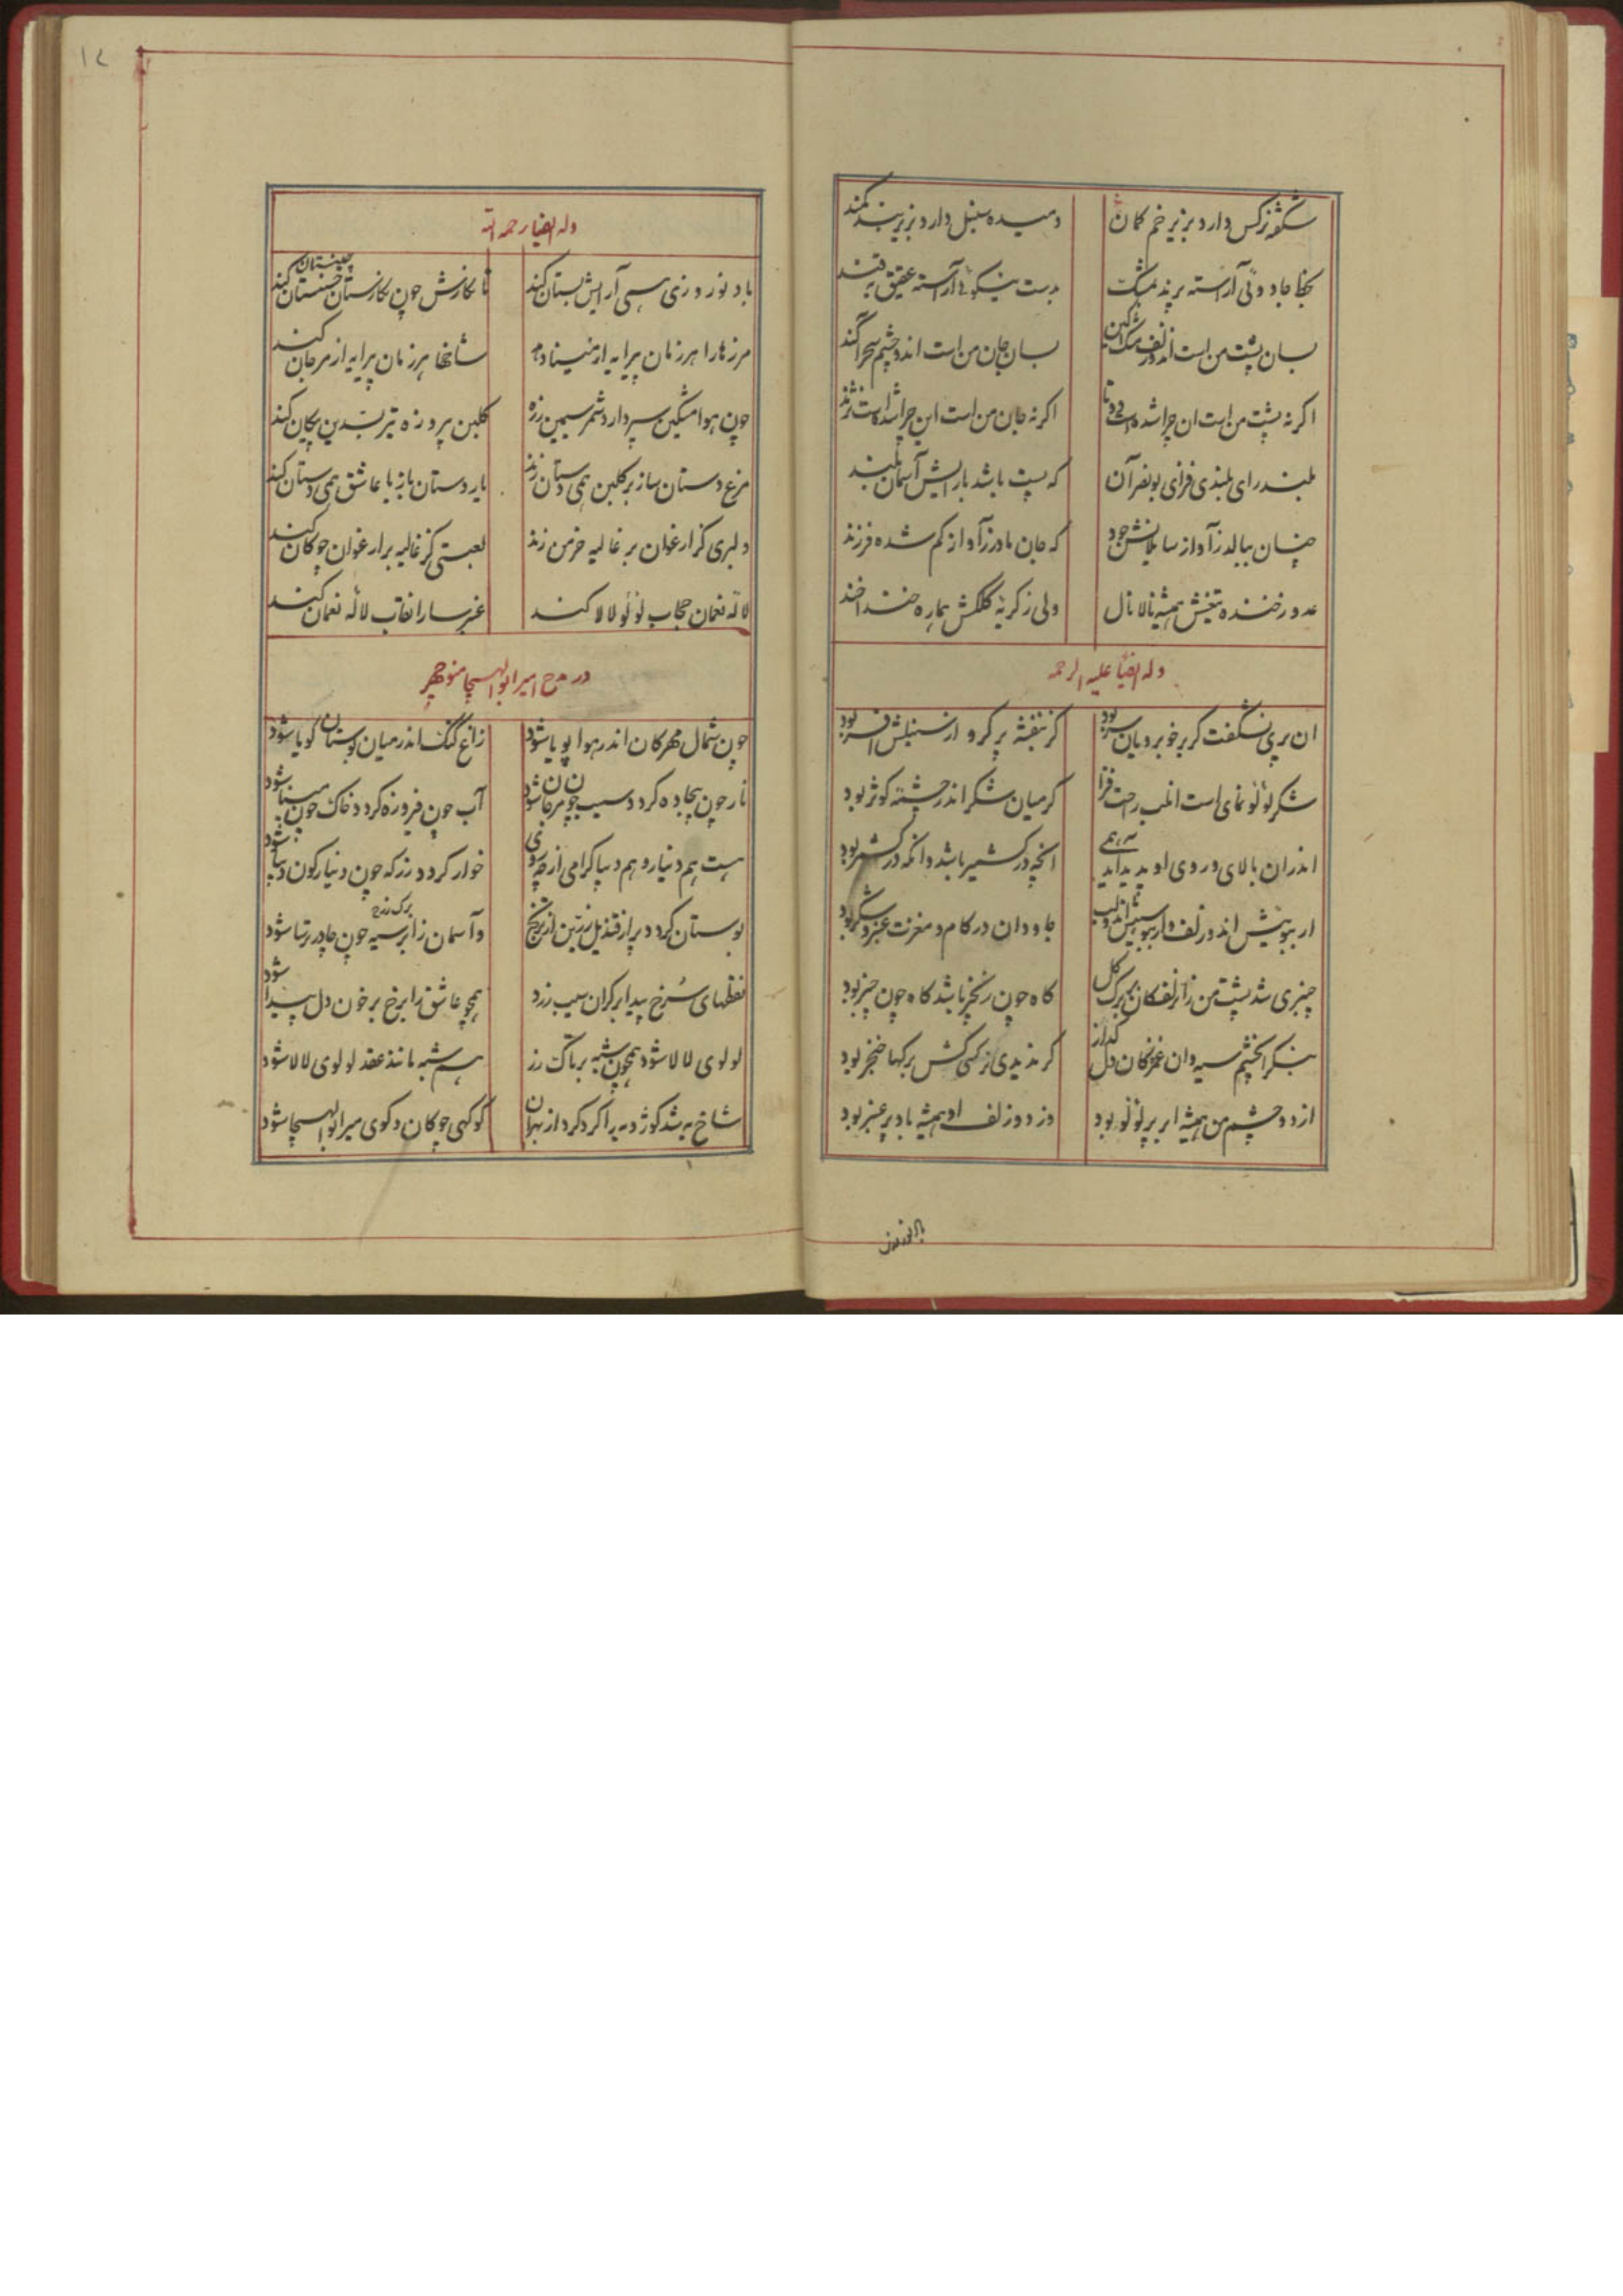 شکفته نرکس دارد بزیر خم کمان
دمیده سنبل دارد بزیر بند کمند
بخط جادوئی آراسته پرند بمشک
بدست نیکوئی آراسته عقیق بقند
بسان پشت من است اندر زلف مشک آکین
بسان جان من است اندر چشم سحر آکند
اکر نه پشت من است ان چرا شده است دوتا
اکر نه جان من است این چرا شده است نژند
بلند رای بلندی فزای بونصر آن
که پست باشد با رایش آسمان بلند
چنان ببالد ز آواز سایلانش جود
که جان مادر ز آواز کم شده فرزند
عدو ز خنده تیغش همیشه نالانال
ولی ز کریهٔ کلکش هماره خنداخند
وله ایضا علیه الرحمه
ان پری نشکفت کر بر خوبرویان سر بود
کز بنفشه پر کرو از سنبلش افسر بود
شکر لؤلؤ نمای است انلب راحت فزا
کر میان شکر اندر چشمه کوثر بود
اندران بالای و روی او پدید آید همی
انچه در کشمیر باشد وانکه در کشمر بود
ار ببوئیش اندو زلف وار ببوسیش اندو لب
جاودان در کام و مغزت عنبر و شکر بود
چنبری شد پشت من زان زلفکان بر برک کل
کاه چون زنجیر باشد کاه چون چنبر بود
بنکر انچشم سیه وان غمزکان دل کداز
کر ندیدی نرکسی کش برکها خنجر بود
از دو چشم من همیشه ابر پر لؤلؤ بود
وز دو زلف او همیشه باد پر عنبر بود
باد نوروزی
۱۲
وله ایضا رحمه الله
باد نوروزی همی آرایش بستان کند
تا نکارش چون نکارستان چینستان کند
چینستان
مرزها را هر زمان پیرایه از مینا دهد
شاخها هر زمان پیرایه از مرجان کند
چون هوا مشکین سپر دارد شمر سیمین زره
کلبن پیروزه تیر بسدین پیکان کند
مرغ دستان ساز بر کلبن همی دستان زند
یار دستان باز با عاشق همی دستان کند
دلبری کز ارغوان بر غالیه خرمن زند
لعبتی کز غالیه بر ارغوان چوکان کند
لاله نعمان حجاب لؤلؤ لالا کند
عنبر سارا نقاب لاله نعمان کند
در مدح امیر ابوالهیجا منوچهر
چون شمال مهرکان اندر هوا پویا شود
زاغ کنک اندر میان بوستان کویا شود
نار چون بیجاده کردد سیب چون مرجان شود
آب چون فیروزه کردد خاک چون مینا شود
هست هم دینار و هم دیبا کرامی از چه روی
خوار کردد رز که چون دینارکون دیبا شود
بوستان کردد پر از قندیل زرین از ترنج
وآسمان زابر سیه چون چادر ترسا شود
برک رز
نقطهای سُرخ پیدا بر کران سیب زرد
همچو عاشق زا برخ بر خون دل پیدا شود
لولوی لالا شود همچون شبه بر تاک رز
هم شبه مانند عقد لولوی لالا شود
کوکهی چوکان و کوی میر ابوالهیجا شود